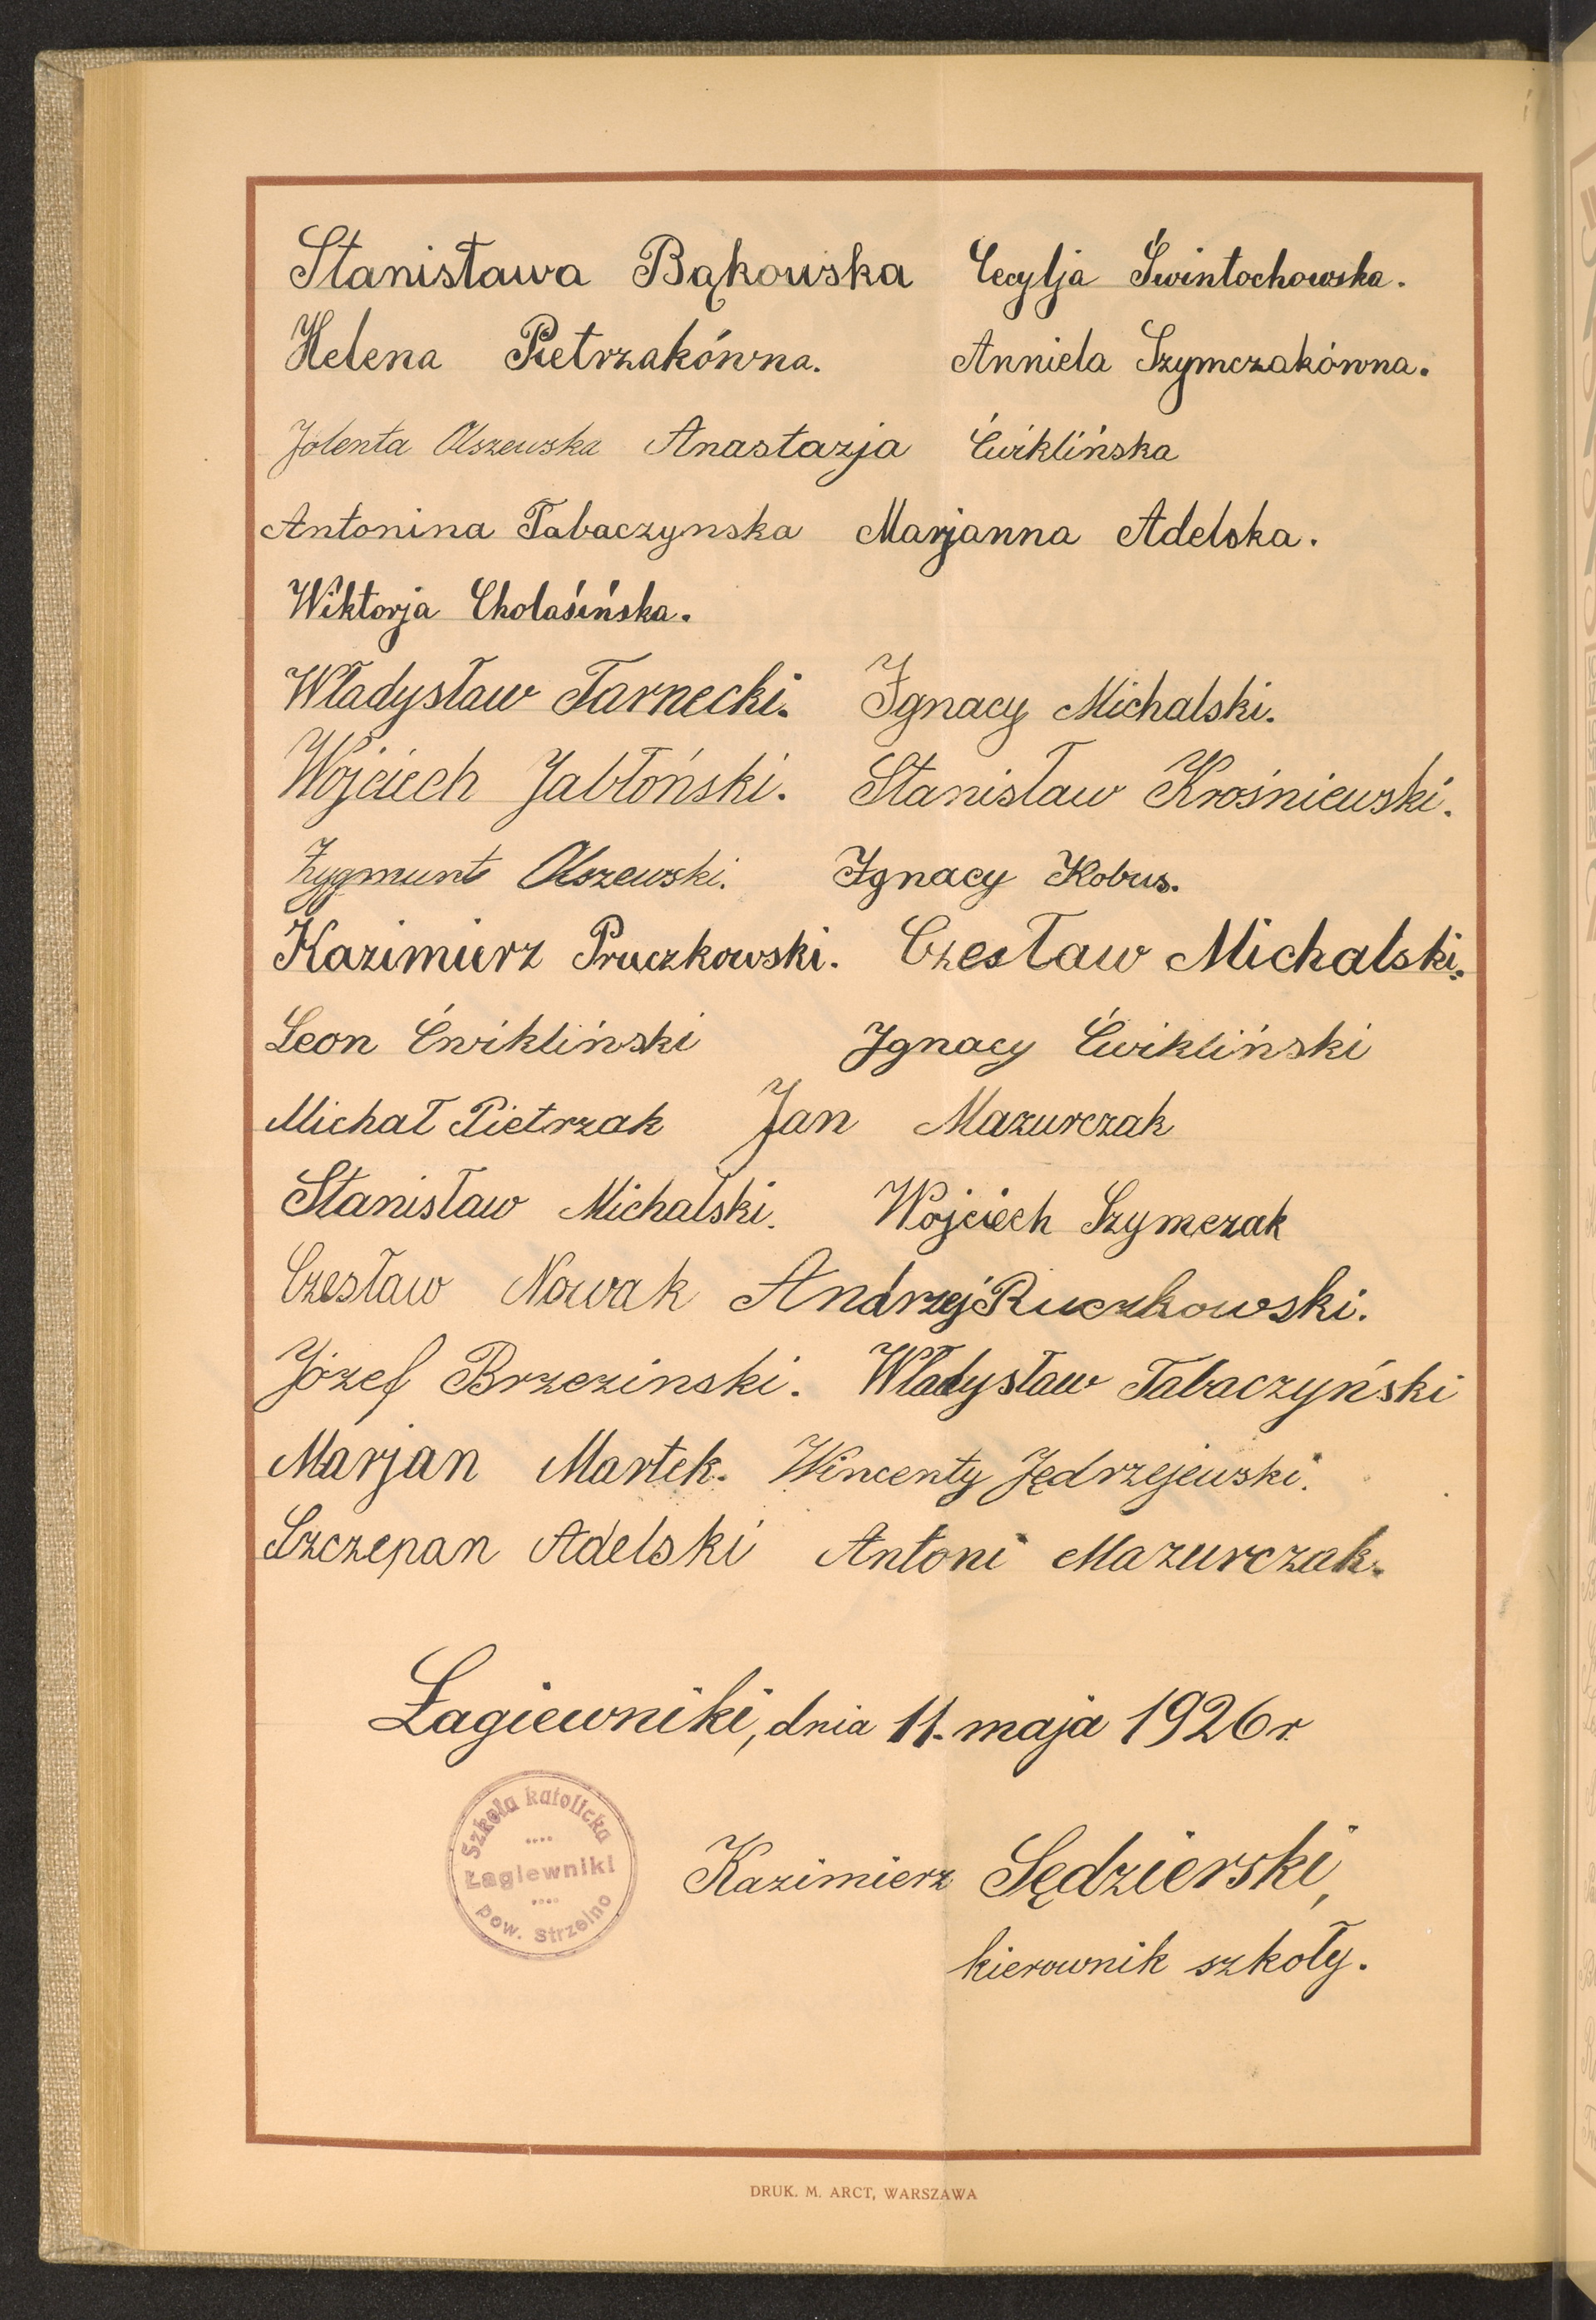 Stanisława Bąkowska Cecylja Świntochowska.
Helena Pietrzakówna. Anniela Szymczakówna.
Jolenta Olszewska Anastazja Ćwiklińska
Antonina Tabaczynska Marjanna Adelska.
Wiktorja Cholasińska.
Władysław Tarnecki. Ignacy Michalski.
Wojciech Jabłoński. Stanisław Krośniewski.
Zygmunt Olszewski. Ignacy Kobus.
Kazimierz Pruczkowski. Czesław Michalski.
Leon Ćwikliński Ignacy Ćwikliński
Michał Pietrzak Jan Mazurczak
Stanisław Michalski. Wojciech Szymczak
Czesław Nowak Andrzej Ruczkowski.
Józef Brzezinski. Władysław Tabaczyński
Marjan Martek. Wincenty Jędrzejewski.
Szczepan Adelski Antoni Mazurczak.
Łagiewniki, dnia 11. maja 1926 r.
Szkoła katolicka
Łagiewniki
pow. Strzelno
Kazimierz Sędzierski,
kierownik szkoły.
DRUK. M. ARCT, WARSZAWA